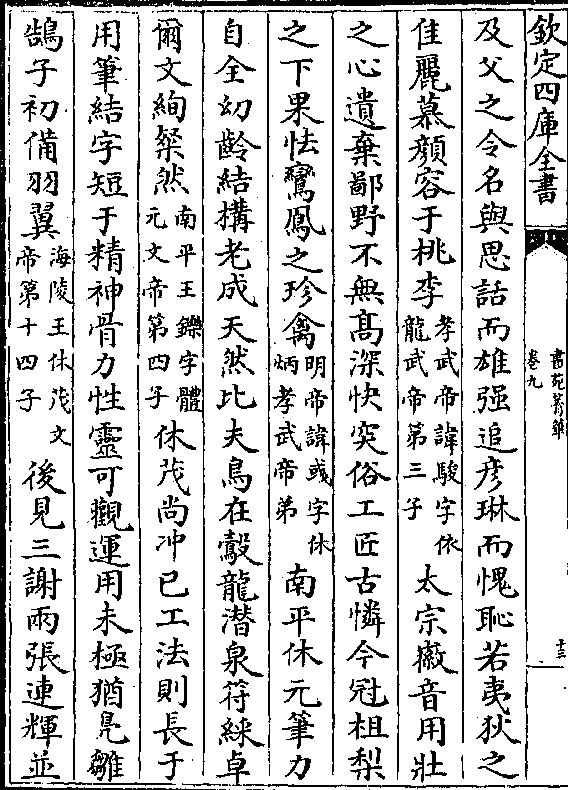 欽定四庫全書
書苑菁華
卷九
十三
及父之令名與思話而雄强追彦琳而愧恥若夷狄之
佳麗慕顔容于桃李孝武帝諱駿字依龍武帝第三子太宗㣲音用壯
之心遺棄鄙野不無髙深快突俗工匠古憐今冠柤梨
之下果怯鸞鳳之珍禽明帝諱或字休炳孝武帝弟南平休元筆力
自全幼齡結構老成天然比夫鳥在鷇龍潛泉符綵卓
爾文絢粲然南平王鑠字體元文帝第四子休茂尚冲已工法則長于
用筆結字短于精神骨力性靈可觀運用未極猶鳬雛
鵠子初備羽翼海陵王休茂文帝第十四子後見三謝兩張連輝並